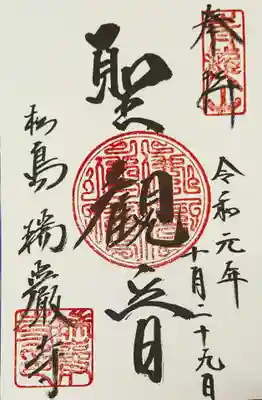 奉拝
令和元年
十月二十九日
聖観音
松島瑞巌寺